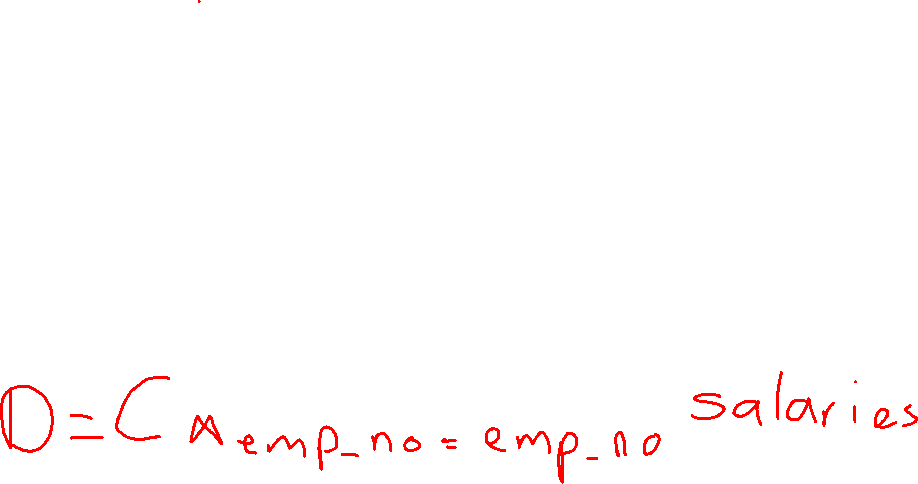 D = C ⋈ emp_no = emp_no salaries